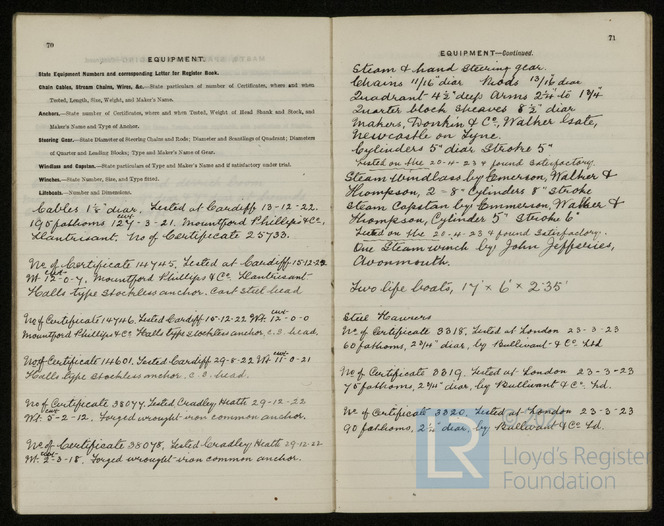 70
EQUIPMENT.
State Equipment Numbers and corresponding Letter for Register Book.
Chain Cables, Stream Chains, Wires, &c.—State particulars of number of Certificates, where and when
Tested, Length, Size, Weight, and Maker's Name.
Anchors.—State number of Certificates, where and when Tested, Weight of Head Shank and Stock, and
Maker's Name and Type of Anchor.
Steering Gear.—State Diameter of Steering Chains and Rods; Diameter and Scantlings of Quadrant; Diameters
of Quarter and Leading Blocks; Type and Maker's Name of Gear.
Windlass and Capstan.—State particulars of Type and Maker's Name and if satisfactory under trial.
Winches.—State Number, Size, and Type fitted.
Lifeboats.—Number and Dimensions.
Cables 1½" diar. Tested at Cardiff 13-12-22.
195 fathoms 127 cwt-3-21. Mountford Phillips & Co.,
Llantrisant. No of Certificate 25733.
No of Certificate 14745. Tested at Cardiff 15-12-22
Wt. 12 cwt-0-7. Mountford Phillips & Co. Llantrisant
Halls type stockless anchor. Cast steel head
No of Certificate 14746. Tested Cardiff 15-12-22 Wt. 12 cwt-0-0
Mountford Phillips & Co Halls type stockless anchor, c.s. head.
No of Certificate 14601. Tested Cardiff 29-8-22 Wt 11 cwt-0-21
Halls type stockless anchor, c.s. head.
No of Certificate 38077. Tested Cradley Heath 29-12-22
Wt. 5 cwt-2-12. Forged wrought iron common anchor.
No of Certificate 38078. Tested Cradley Heath 29-12-22
Wt. 2 cwt-3-18. Forged wrought iron common anchor.
71
EQUIPMENT—Continued.
Steam & hand steering gear.
Chains 11/16" diar Rods 13/16 diar
Quadrant 4½" deep Arms 2¼" to 1¾"
Quarter block sheaves 8½" diar
Makers, Donkin & Co, Walker Gate,
Newcastle on Tyne.
Cylinders 5" diar Stroke 5"
Tested on the 20-4-23 & found satisfactory.
Steam Windlass by Emerson, Walker &
Thompson, 2 - 8" Cylinders 8" stroke
Steam Capstan by Emmerson, Walker &
Thompson, Cylinder 5" Stroke 6"
Tested on the 20-4-23 & found satisfactory.
One Steam winch by John Jefferies,
Avonmouth.
Two life boats, 17' × 6' × 2.35'
Steel Hawsers
No of Certificate 3318. Tested at London 23-3-23
60 fathoms, 2¾" diar, by Bullivant & Co Ltd
No of Certificate 3319. Tested at London 23-3-23
75 fathoms, diar, by Bullivant & Co. Ld.
No of Certificate 3320. Tested at London 23-3-23
90 fathoms, diar, by Bullivant & Co Ld.
LR
Lloyd's Register
Foundation